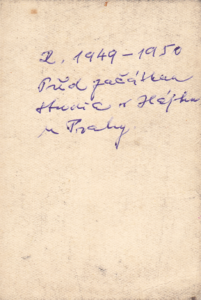 R. 1949 – 1950
Před začátkem
studia v Hájku
u Prahy